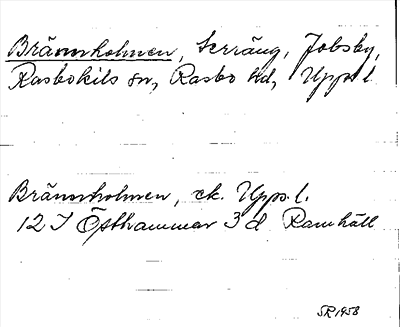 Brännholmen, terräng, Jobsby,
Rasbokils sn, Rasbo hd, Upps. l.
Brännholmen, ek. Upps. l.
12 I Östhammar 3 d Ramhäll
SR 1958